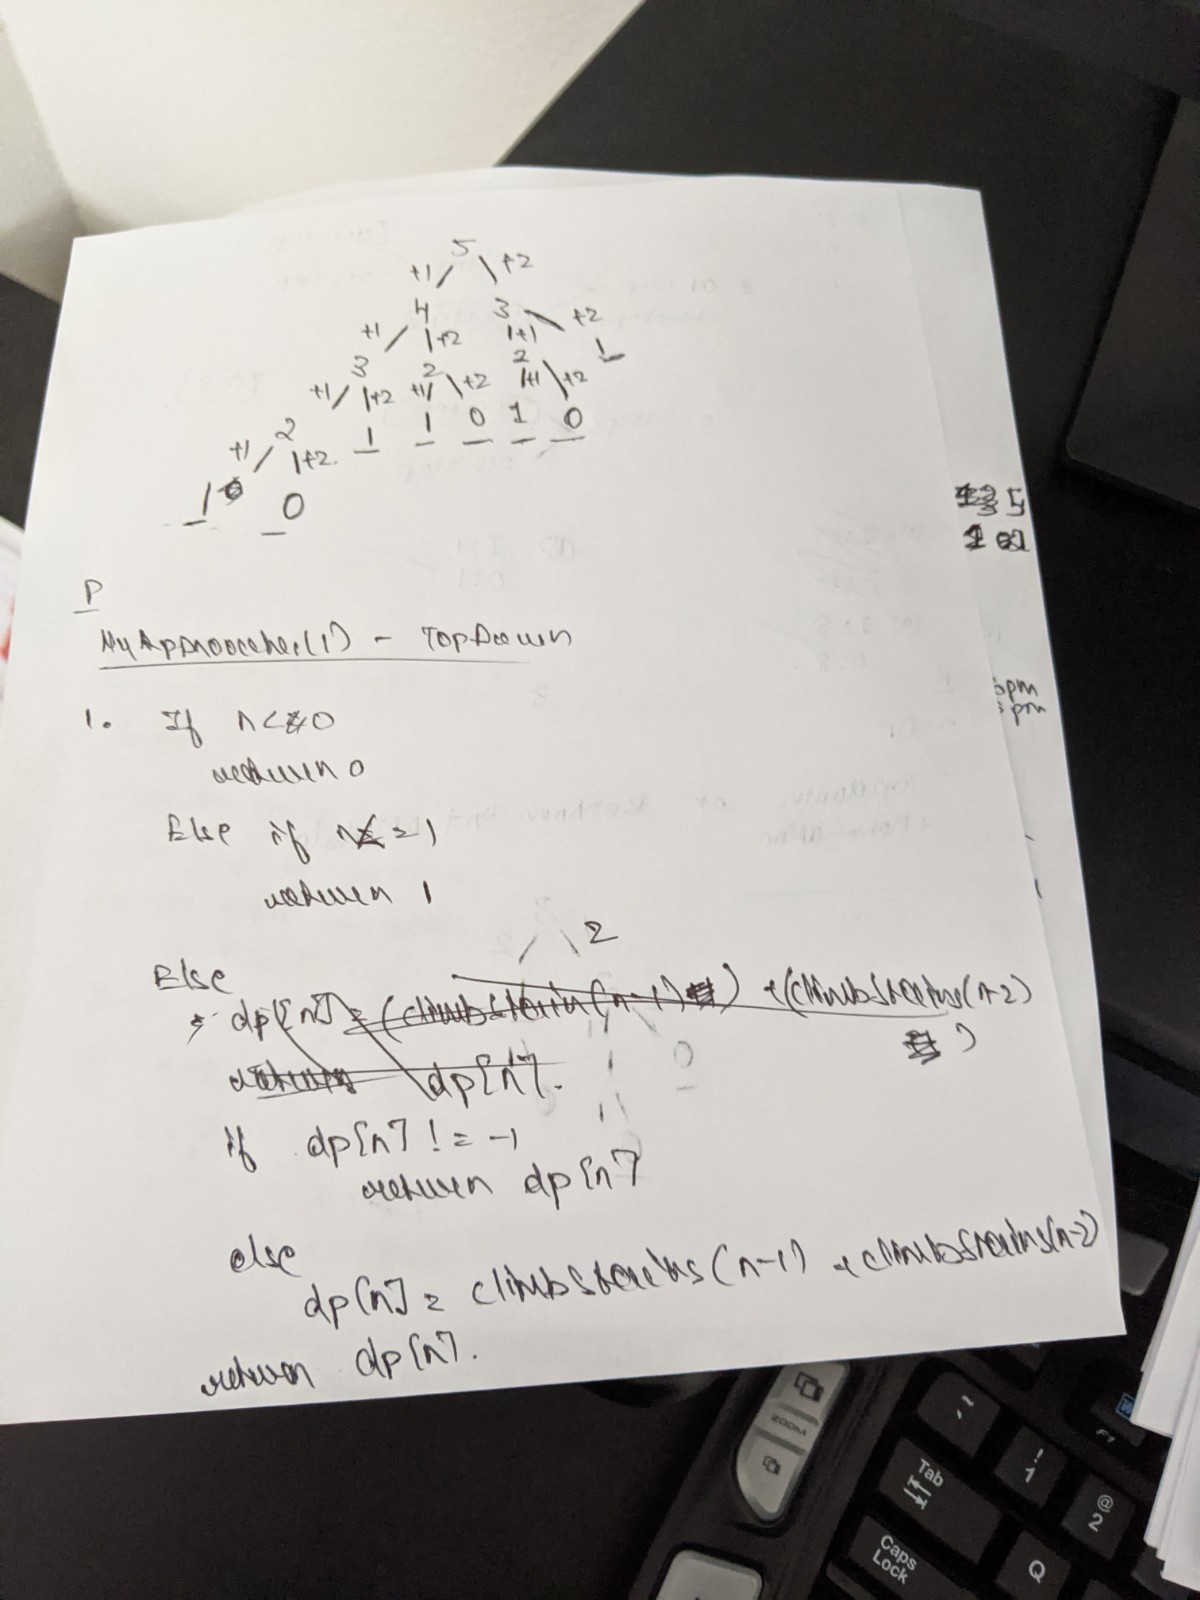 5
+1 / \ +2
4 3
+1 / |+2 1+1 \ +2
3 2 2 1
+1 / |+2 +1/ \+2 1+1 \+2
2 1 1 0 1 0
+1 / 1+2.
1 0
P
My Approach(1) - TopDown
1. If n<0
return 0
Else if n=1
return 1
2
Else
dp[n] = (climbstair(n-1)) + (climbstairs(n-2)
)
return dp[n].
if dp[n] != -1
return dp[n]
else
dp[n] = climbstairs(n-1) + climbstairs(n-2)
return dp[n].
5
pm
pm
ZOOM
Tab
Caps
Lock
~
`
!
1
@
2
Q
F1